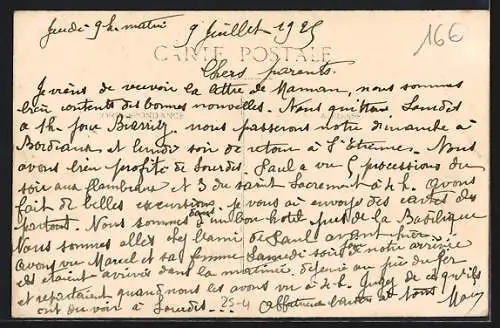 Jeudi 9h. matin 9 Juillet 1925
16€
CARTE POSTALE
Chers parents.
Je viens de recevoir la lettre de Maman, nous sommes
bien contents des bonnes nouvelles. Nous quittons Lourdes
CORRESPONDANCE
à 1h. pour Biarritz, nous passerons notre dimanche à
Bordeaux et lundi soir de retour à St Etienne. Nous
avons bien profité de Lourdes. Paul a vu 5 processions du
soir aux flambeaux et 3 du Saint Sacrement à 4h. Avons
fait de belles excursions. Je vous ai envoyé des cartes de
partout. Nous sommes dans un bon hotel près de la Basilique
Nous sommes allés chez l'ami de Paul avant hier
avons vu Marcel et sa femme Samedi soir de notre arrivée
ils étaient arrivés dans la matinée, au
et repartaient quand nous les avons vu à 4h. Jugez de ce qu'ils
ont du voir à Lourdes... 25-4 Affectueux de tous